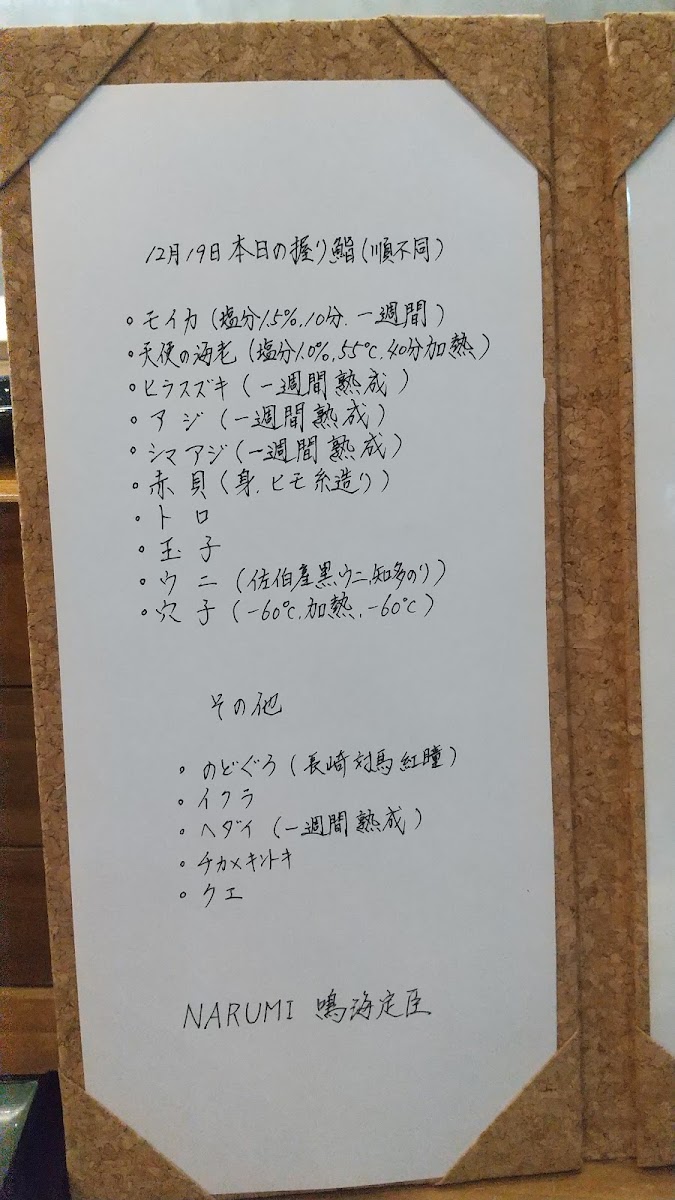 12月19日 本日の握り鮨(順不同)
・モイカ(塩分1.5%、10分、一週間)
・天使の海老(塩分1.0%、55℃、40分加熱)
・ヒラスズキ(一週間熟成)
・アジ(一週間熟成)
・シマアジ(一週間熟成)
・赤貝(身、ヒモ糸造り)
・トロ
・玉子
・ウニ(佐伯産黒ウニ、知多のり)
・穴子(-60℃、加熱、-60℃)
その他
・のどぐろ(長崎対馬紅瞳)
・イクラ
・ヘダイ(一週間熟成)
・チカメキントキ
・クエ
NARUMI 鳴海定臣